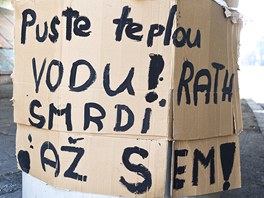 PUSTE teplou
VODU! RATH
SMRDÍ
AŽ SEM!